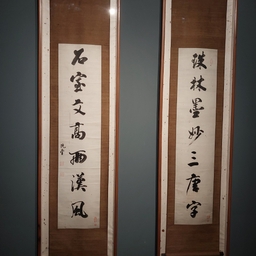 珠林墨妙三唐字
石室文高兩漢風